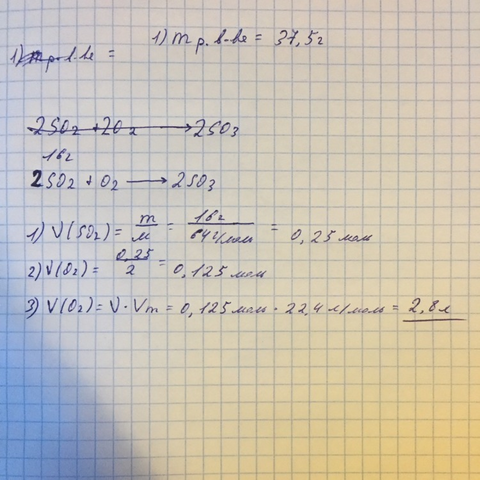 1) m р. в-ва = 37,5г
1) m р. в-ва =
2SO₂ + 2O₂ → 2SO₃
16г
2SO₂ + O₂ → 2SO₃
1) V(SO₂) = m/M = 16г/64г/моль = 0,25 моль
2) V(O₂) = 0,25/2 = 0,125 моль
3) V(O₂) = V · Vm = 0,125 моль · 22,4 л/моль = 2,8 л